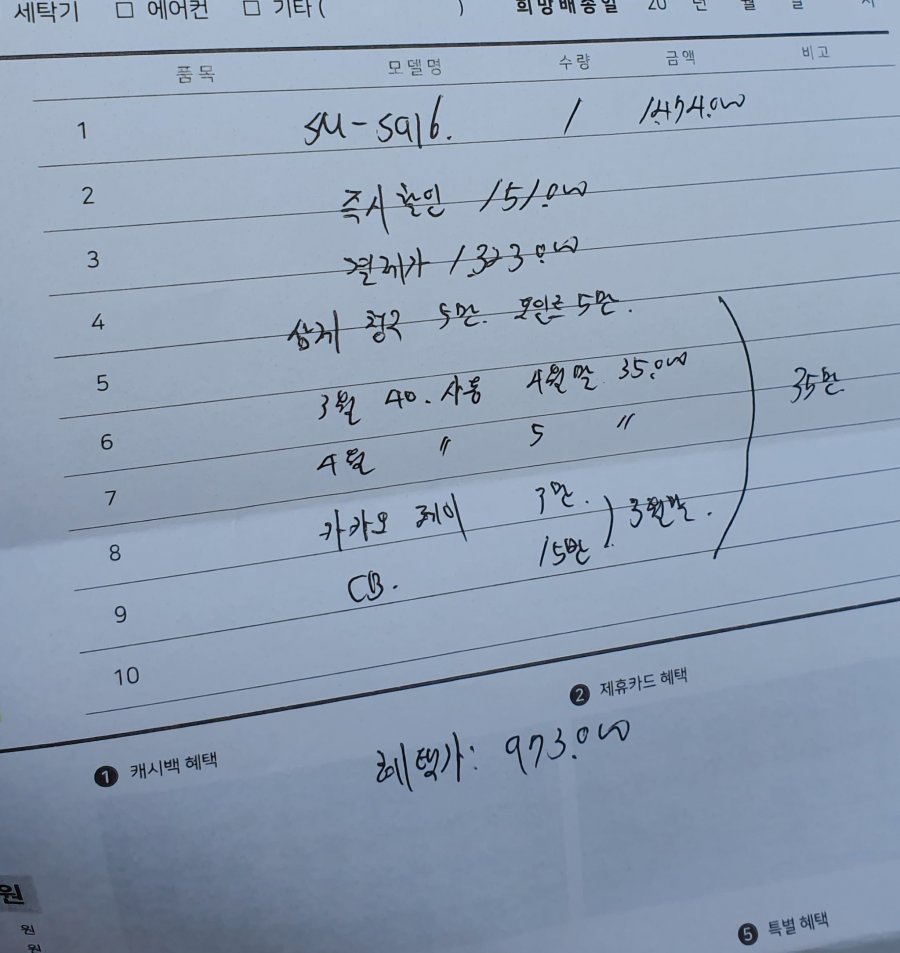 세탁기 □ 에어컨 □ 기타 ( ) 희망배송일 20 년 월 일 시
품목 모델명 수량 금액 비고
1 SM-S916. 1 1,474.000
2 즉시할인 151.000
3 결제가 1,323.000
4 삼케 청구 5만. 포인트 5만.
5 3월 40. 사용 4월말 35.000
6 4월 〃 5 〃
35만
7
8 카카오 페이 3만. 3월말.
9 CB. 15만
10
❷ 제휴카드 혜택
❶ 캐시백 혜택
혜택가: 973.000
원
원
원
❺ 특별 혜택